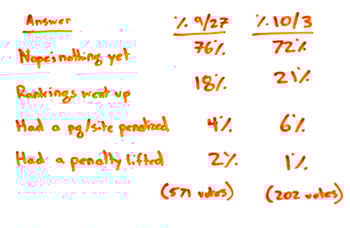 Answer % 9/27 % 10/3
Nope nothing yet 76% 72%
Rankings went up 18% 21%
Had a pg/site penalized 4% 6%
Had a penalty lifted 2% 1%
(571 votes) (202 votes)